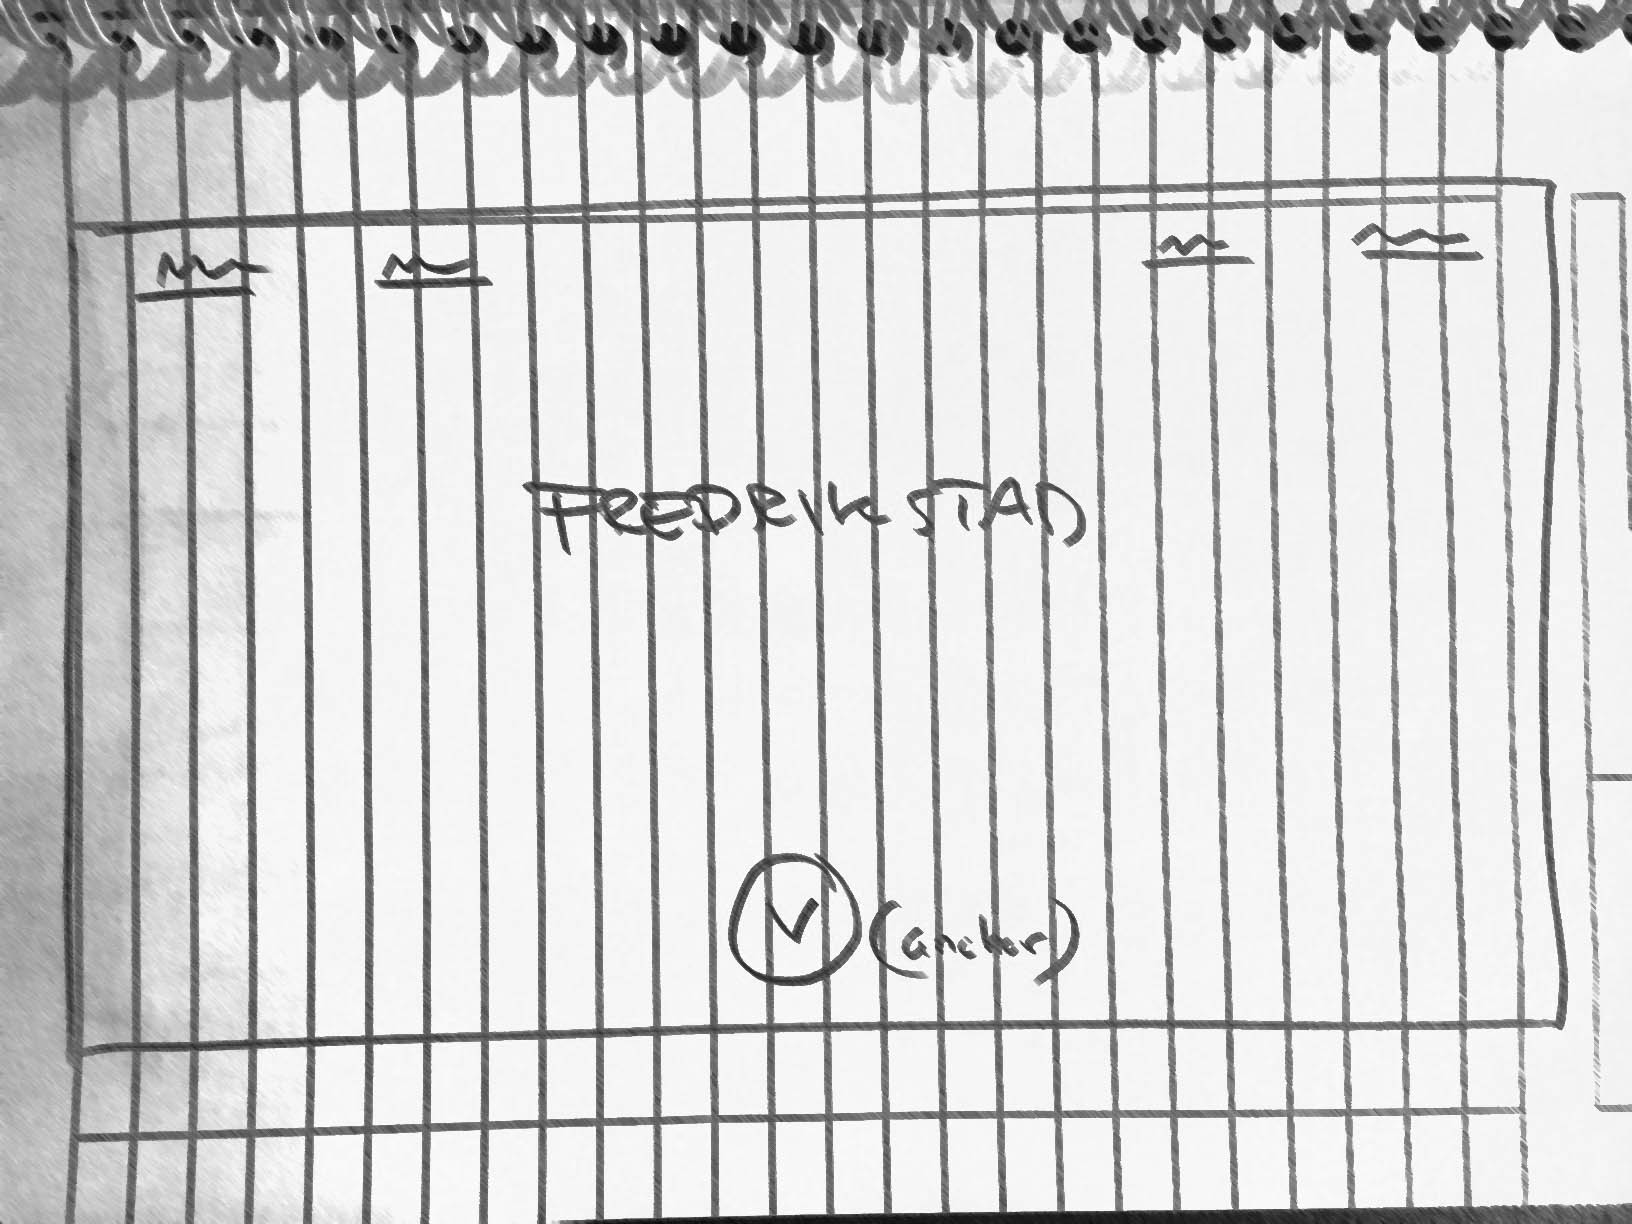 FREDRIKSTAD
V (anchor)